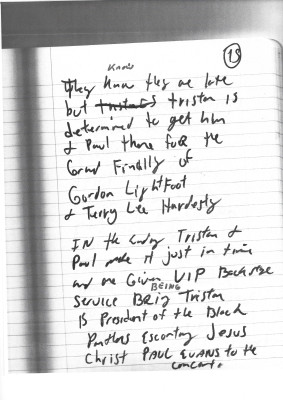 18
Know
They know they are late
but Tristan is
determined to get him
& Paul there for the
Grand Finally of
Gordon LightFoot
& Terry Lee Hardesty
IN the ending Tristan &
Paul make it just in time
and are Given VIP Backstage
BEING
Service BEing Tristan
is President of the Black
Panthers Escorting Jesus
Christ PAUL EVANS to the
concert.